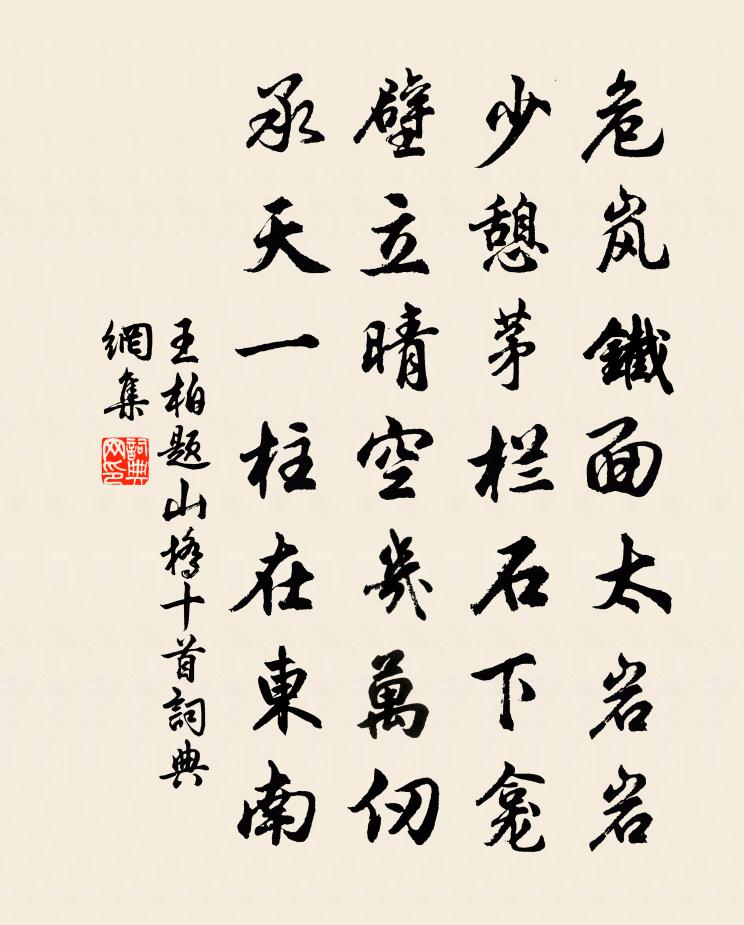 危岚鐵面太岩岩
少憩茅栏石下龛
壁立晴空幾萬仞
承天一柱在東南
王柏题山橋十首詞典
網集
詞典
网印